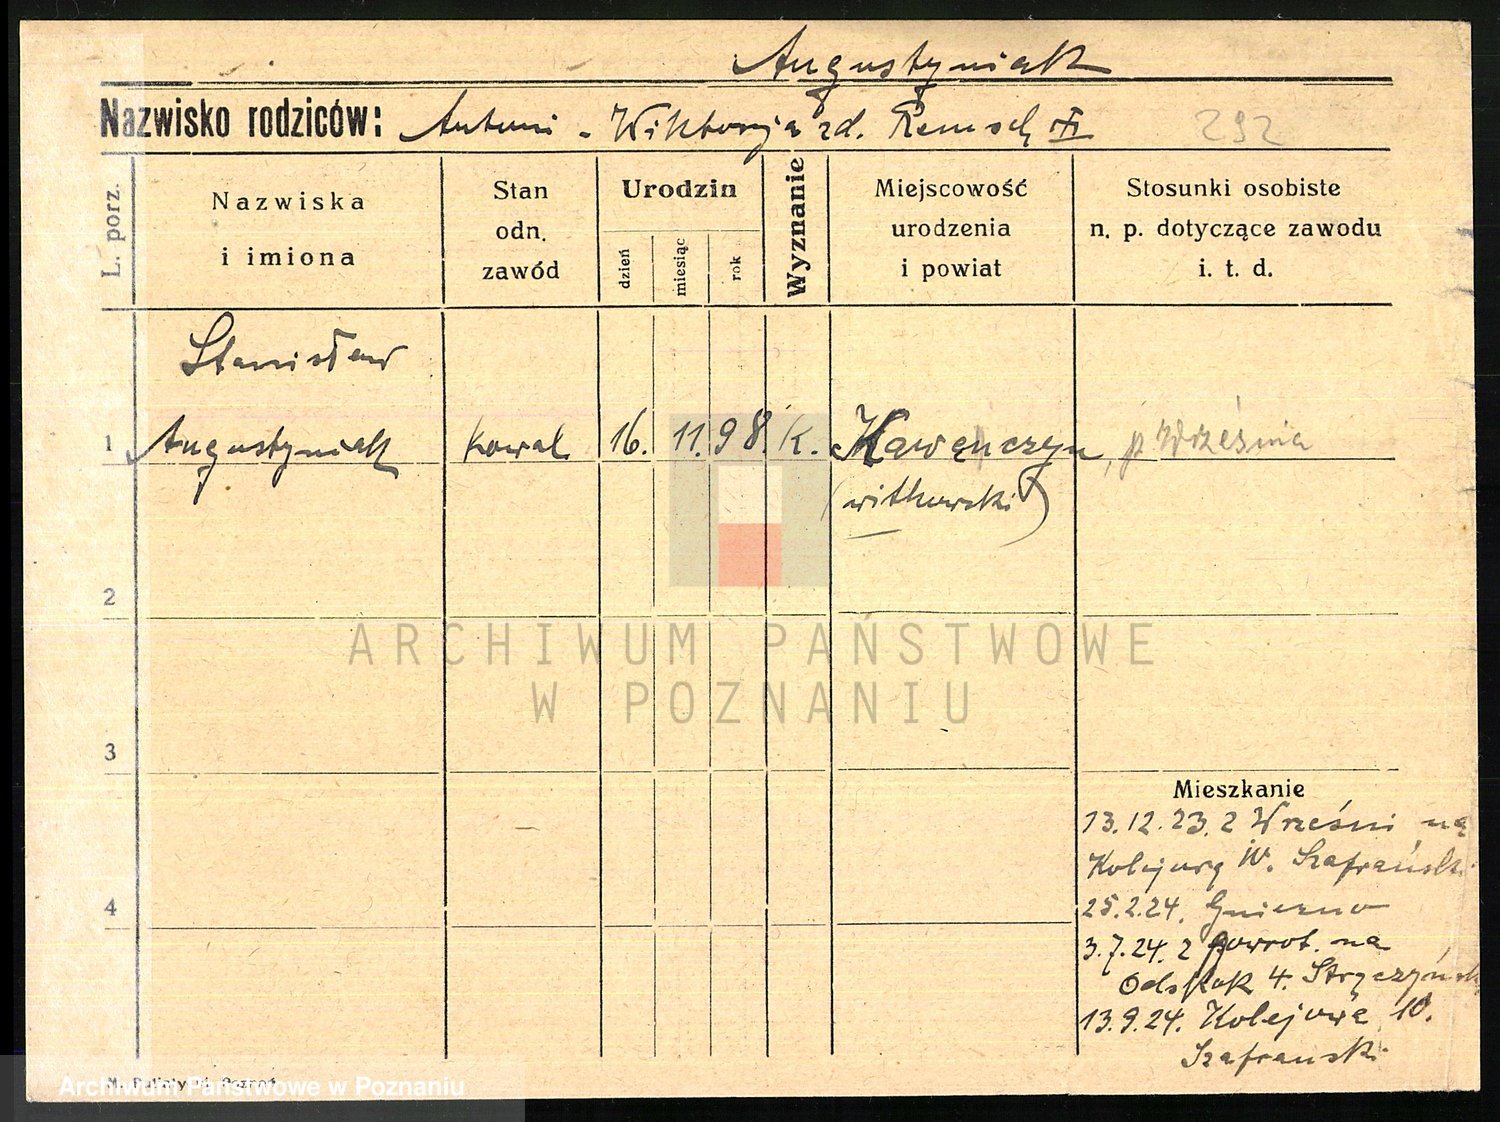 Augustyniak
Nazwisko rodziców: Antoni - Wiktorja zd. 292
L. porz.
Nazwiska
i imiona
Stan
odn.
zawód
Urodzin
dzień
miesiąc
rok
Wyznanie
Miejscowość
urodzenia
i powiat
Stosunki osobiste
n. p. dotyczące zawodu
i. t. d.
Stanisław
1 Augustyniak kowal 16. 11. 98. K. Kawęnczyn, p Września
(witkowski)
2
ARCHIWUM PAŃSTWOWE
W POZNANIU
3
Mieszkanie
13.12.23. z Wrześni na
Kolejową W. Szafrański
4
25.2.24. Gniezno
3.7.24. z powrot. na
Odskok 4. Stręczyńsk
13.9.24. Kolejowa 10.
Szafranski
Archiwum Państwowe w Poznaniu